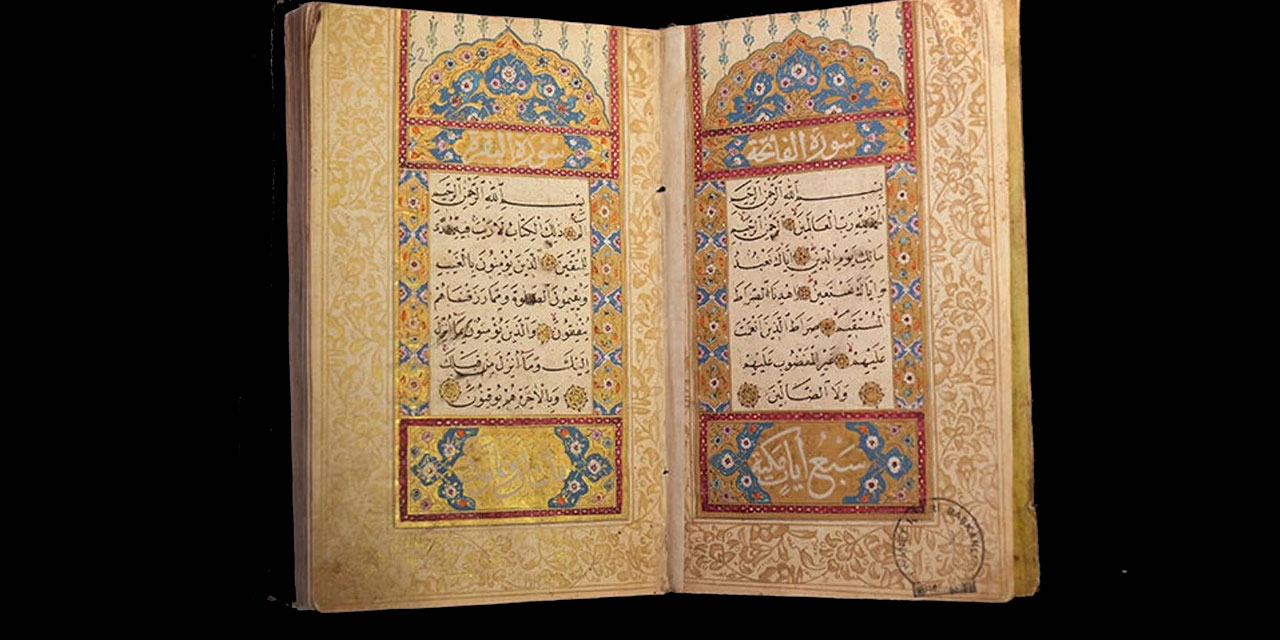 سورة الفاتحة
بسم الله الرحمن الرحيم
الحمد لله رب العالمين الرحمن الرحيم
مالك يوم الدين اياك نعبد
واياك نستعين اهدنا الصراط
المستقيم صراط الذين انعمت
عليهم غير المغضوب عليهم
ولا الضالين
سبع آيات مكية
سورة البقرة
بسم الله الرحمن الرحيم
الم ذلك الكتاب لا ريب فيه هدى
للمتقين الذين يؤمنون بالغيب
ويقيمون الصلوة ومما رزقناهم
ينفقون والذين يؤمنون بما انزل
اليك وما انزل من قبلك
وبالآخرة هم يوقنون